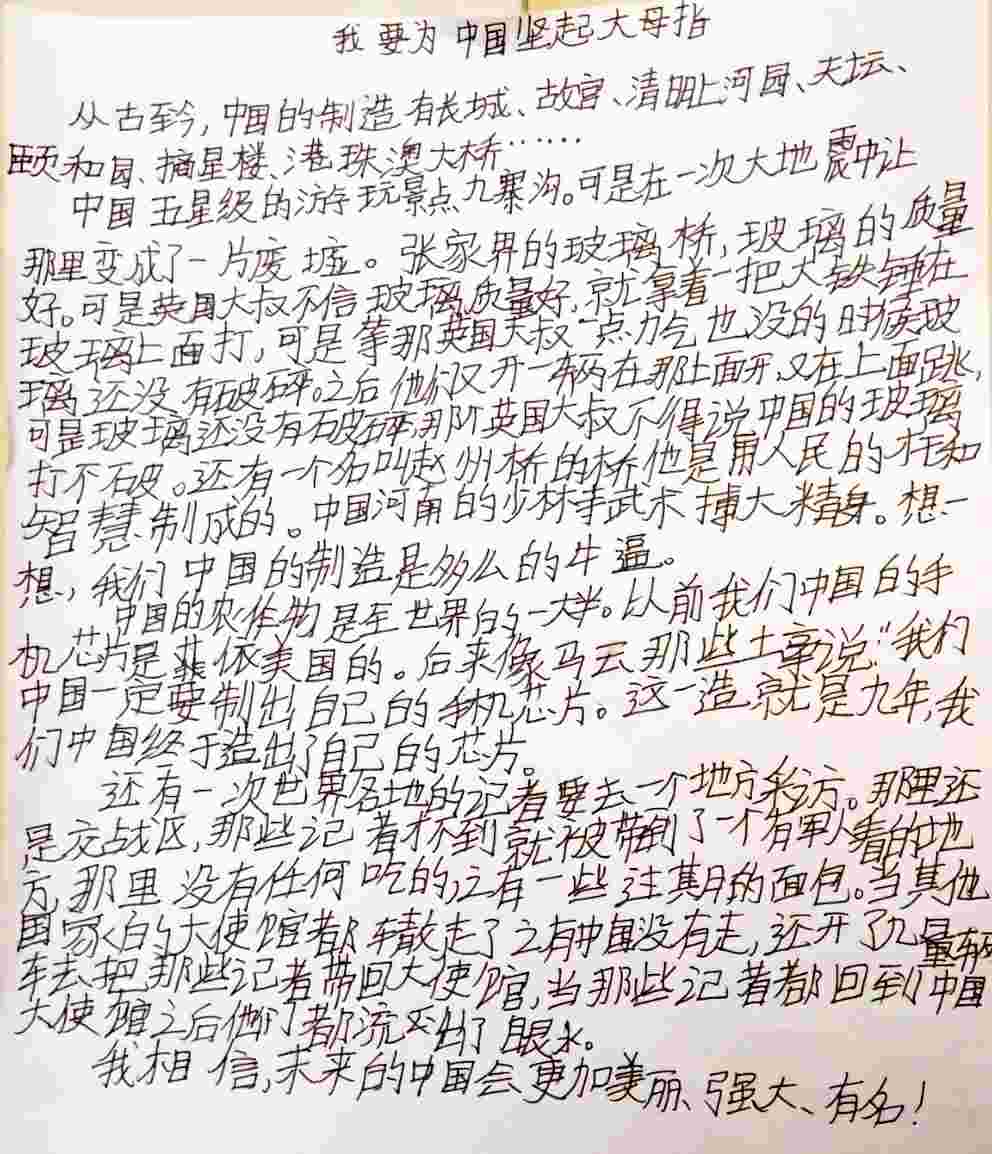 我要为中国坚起大母指
从古至今,中国的制造有长城、故宫、清明上河园、天坛、
颐和园、摘星楼、港珠澳大桥……
中国五星级的游玩景点九寨沟。可是在一次大地震中让
那里变成了一片废墟。张家界的玻璃桥,玻璃的质量
好。可是英国大叔不信玻璃质量好,就拿着一把大铁锤在
玻璃上面打,可是等那英国大叔一点力气也没的时候玻
璃还没有破碎。之后他们又开一辆在那上面开,又在上面跳,
可是玻璃还没有破碎,那个英国大叔不得说中国的玻璃
打不破。还有一个名叫赵州桥的桥他是用人民的汗和
智慧制成的。中国河南的少林寺武术博大精身。想一
想,我们中国的制造是多么的牛逼。
中国的农作物是至世界的一大半。以前我们中国的手
机芯片是靠依美国的。后来像马云那些士拿说:“我们
中国一定要制出自己的手机芯片。这一造就是九年,我
们中国终于造出了自己的芯片。
还有一次世界各地的记者要去一个地方采访。那里还
是交战区,那些记者才不到就被带到了一个有军人看的地
方,那里没有任何吃的,只有一些过期的面包。当其他
国家的大使馆都撤走了只有中国没有走,还开了九量辆
车去把那些记者带回大使馆,当那些记者都回到中国
大使馆之后他们都流出了眼水。
我相信,未来的中国会更加美丽、强大、有名!